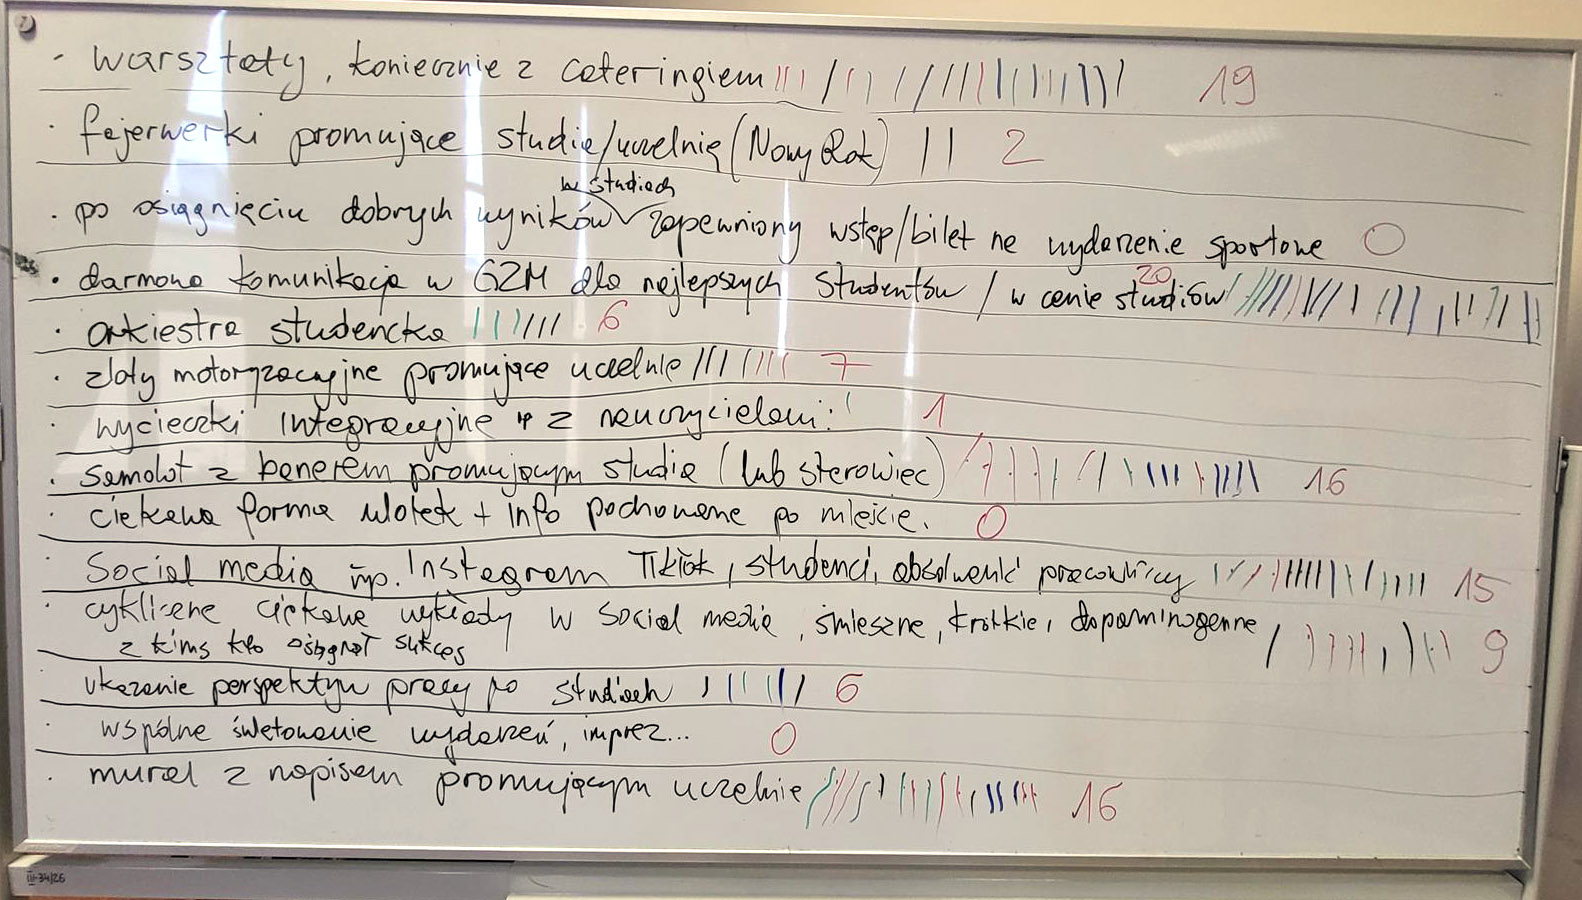 · warsztaty, koniecznie z cateringiem 19
· fajerwerki promujące studia/uczelnię (Nowy Rok) 2
w studiach
· po osiągnięciu dobrych wyników zapewniony wstęp/bilet na wydarzenie sportowe 0
· darmowa komunikacja w GZM dla najlepszych studentów / w cenie studiów 20
· orkiestra studencka 6
· zloty motoryzacyjne promujące uczelnie 7
· wycieczki integracyjne z nauczycielami: 1
· samolot z banerem promującym studia (lub sterowiec) 16
· ciekawa forma ulotek + info pochowane po mieście. 0
· Social media np. Instagram TikTok, studenci, absolwenci pracownicy 15
· cykliczne ciekawe wykłady w social media, śmieszne, krótkie, dopaminogenne 9
z kimś kto osiągnął sukces
· ukazanie perspektyw pracy po studiach 6
· wspólne świętowanie wydarzeń, imprez... 0
· mural z napisem promującym uczelnie 16
III-34/26